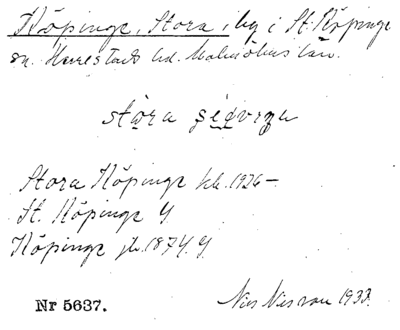 Köpinge, Stora, by i St. Köpinge
sn. Herrestads hd. Malmöhus län.
stora
Stora Köpinge kb. 1926—
St. Köpinge
Köpinge jb. 1874.
Nr 5637.
Nils Nilsson 1933.